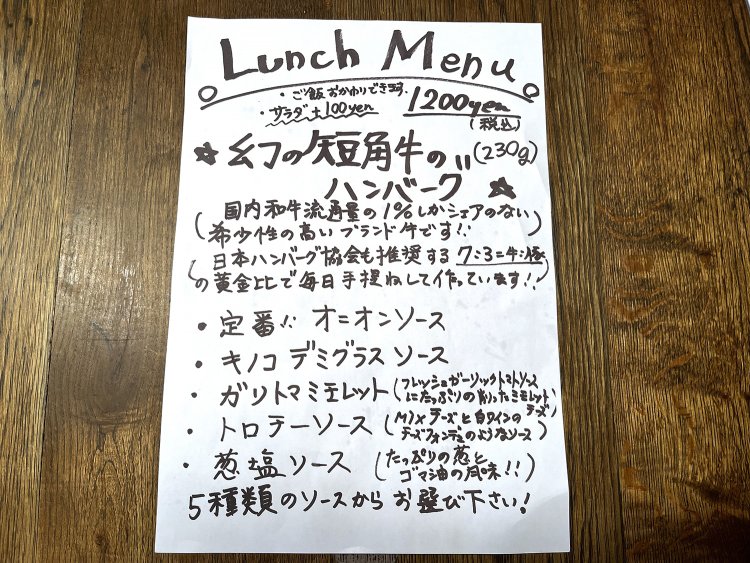 Lunch Menu
・ご飯おかわりできます.
・サラダ+100yen
1200yen
(税込)
☆幻の短角牛の(230g)
ハンバーグ☆
(国内和牛流通量の1%しかシェアのない
希少性の高いブランド牛です!!)
(日本ハンバーグ協会も推奨する7:3=牛:豚
の黄金比で毎日手捏ねして作っています!!)
・定番!! オニオンソース
・キノコデミグラスソース
・ガリトマミモレット(フレッシュガーリックトマトソース
にたっぷりの削ったミモレット)
・トロチーソース(MIXチーズと白ワインのチーズ
チーズフォンデュのようなソース)
・葱塩ソース(たっぷりの葱と
ゴマ油の風味!!)
5種類のソースからお選び下さい!